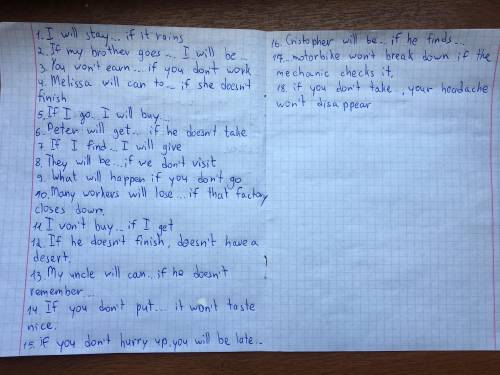 1. I will stay... if it rains
2. If my brother goes... I will be...
3. You won't earn... if you don't work
4. Melissa will can to... if she doesn't
finish
5. If I go... I will buy...
6. Peter will get... if he doesn't take
7. If I find... I will give
8. They will be... if we don't visit
9. What will happen if you don't go
10. Many workers will lose... if that factory
closes down.
11 I won't buy... if I get
12. If he doesn't finish, doesn't have a
desert.
13. My uncle will can... if he doesn't
remember...
14. If you don't put... it won't taste
nice.
15. if you don't hurry up, you will be late...
16. Cristopher will be... if he finds...
17. motorbike won't break down if the
mechanic checks it.
18. if you don't take, your headache
won't disappear